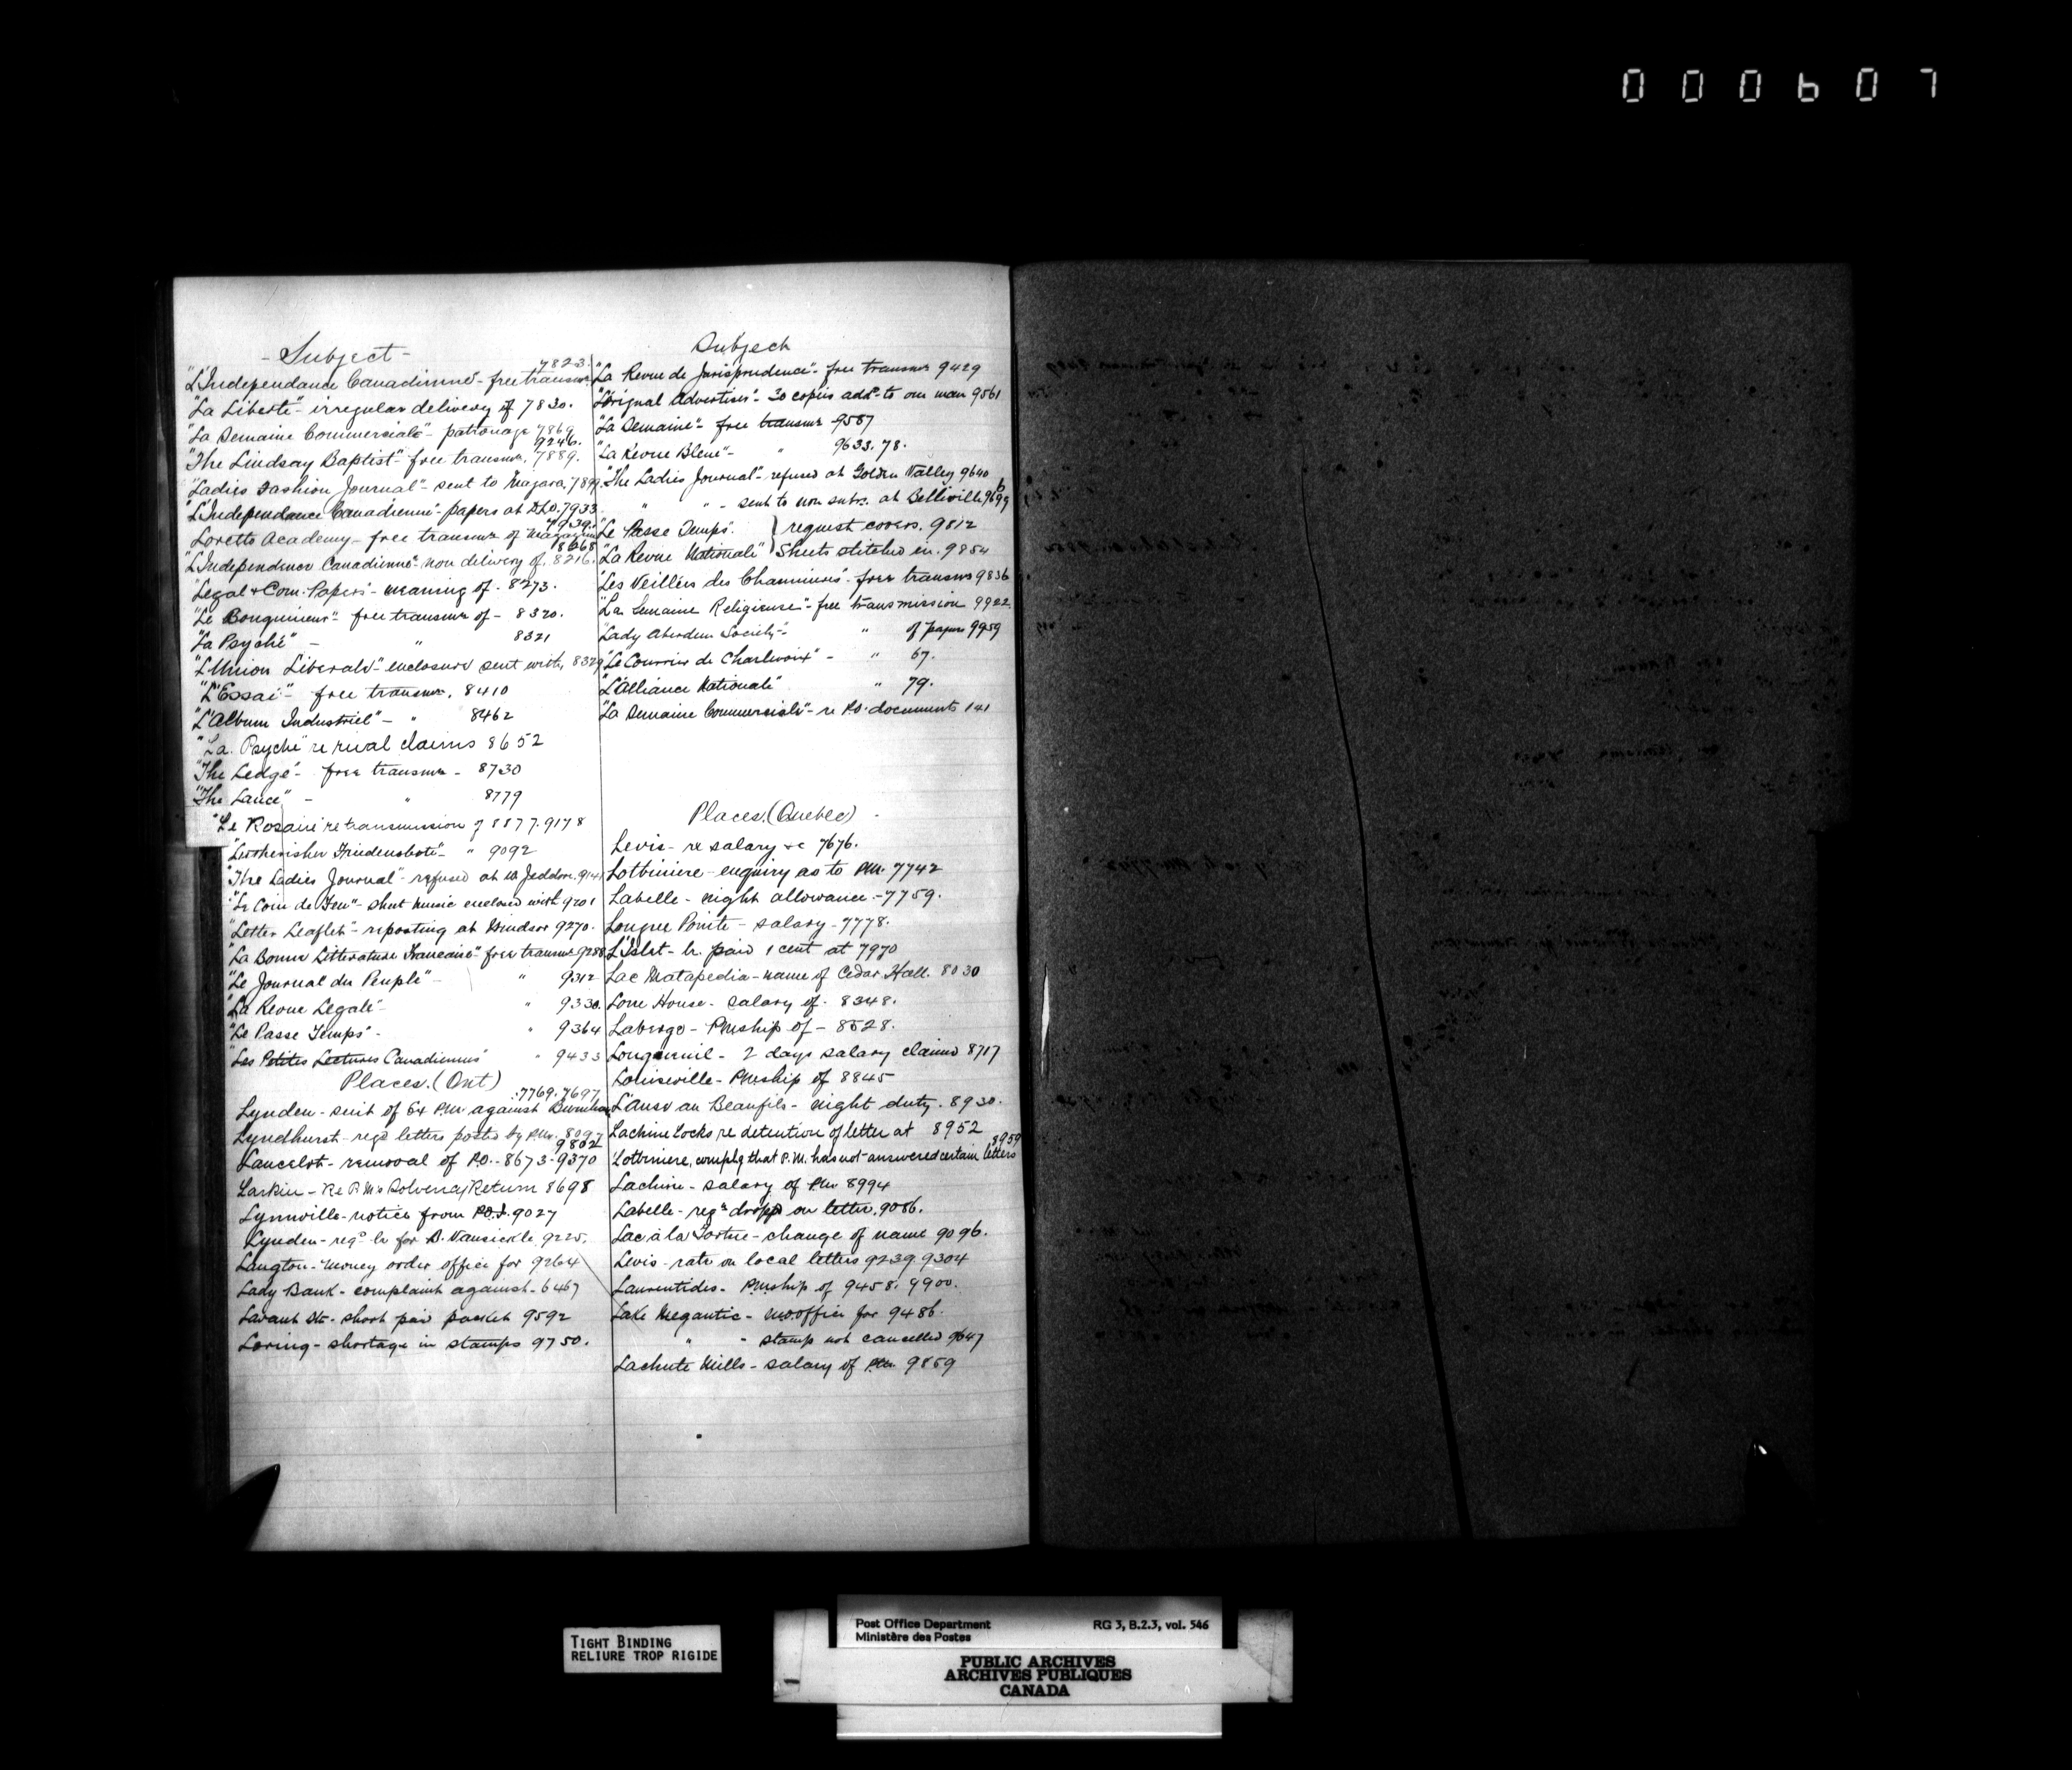 000607
- Subject -
7823.
"L'Independance Canadienne" - free transm.
"La Liberté" - irregular delivery of 7830.
"La Semaine Commerciale" - patronage 7869
9246.
"The Lindsay Baptist" - free transm. 7889.
"Ladies Fashion Journal" - sent to Niagara, 789
"L'Independance Canadienne" - papers at D.L.O. 7933
7939.
Loretto Academy - free transmn of Magazine
8668
"L'Independence Canadienne" non delivery of, 8216.
"Legal & Com. Papers" - meaning of - 8273.
"Le Bouquineur" - free transmn of - 8320.
"La Psyché" - " 8321
"L'Union Liberale" enclosure sent with, 8329
"L'Essai" - free transmn. 8410
"L'Album Industriel" - " 8462
"La Psyche" re rival claims 8652
"The Ledge" - free transmn - 8730
"The Lance" - " 8779
"Le Rosaire" re transmission of 8877. 9178
"Lutherisher Friedensbote" - " 9092
"The Ladies Journal" - refused at W. Jeddore. 914
"Le Coin de Feu" - sheet music enclosed with 9201
"Letter Leaflet" - reposting at Windsor 9270.
"La Bonne Litterature Francaise" free transmn 9288
"Le Journal du Peuple" - " 9312
"La Revue Legale" " 9330.
"Le Passe Temps" - " 9364
"Les Petites Lectures Canadiennes" " 9433
Places. (Ont)
7769. 7697
Lynden - suit of Ex P.M. against Burnham
Lyndhurst - regd letters posted by P.M. 8097
9802
Lancelot - removal of P.O. - 8673 - 9370
Larkin - Re P.M's Solvency Return 8698
Lynnville - notice from P.O.I. 9027
Lynden - regd lr for B. Vansickle 9225.
Langton - money order office for 9264
Lady Bank - complaint against - 6467
Lavant Stn - short paid packet 9592
Loring - shortage in stamps 9750.
Subject
"La Revue de Jurisprudence" - free transmn 9429
"L'Orignal Advertiser" - 30 copies add. to one man 9561
"La Semaine" - free transmn 9587
"La Revue Bleue" - " 9633. 78.
"The Ladies Journal" - refused at Golden Valley 9640
" " - sent to non subs. at Belleville 9699
"Le Passe Temps" } request covers. 9812
"La Revue Nationale" } Sheets stitched in. 9854
"Les Veillées des Chaumieres" - free transmn 9836
"La Semaine Religieuse" - free transmission 9922
"Lady Aberdeen Society" - " of papers 9959
"Le Courrier de Charlevoix" - " 67.
"L'Alliance Nationale" " 79.
"La Semaine Commerciale" - re P.O. documents 141
Places. (Quebec) -
Levis - re salary &c 7676.
Lotbiniere - enquiry as to P.M. 7742
Labelle - night allowance - 7759.
Longue Pointe - salary - 7778.
L'Islet - lr. paid 1 cent at 7970
Lac Matapedia - name of Cedar Hall. 8030
Lorne House - salary of - 8348.
Laberge - P.M.ship of - 8528.
Longueuil - 2 days salary claimed 8717
Louiseville - P.M.ship of 8845
L'Anse au Beaufils - night duty. 8930.
Lachine Locks re detention of letter at 8952
8959
Lotbiniere, complg that P.M. has not answered certain letters
Lachine - salary of P.M. 8994
Labelle - regd dropp on letter. 9086.
Lac à la Tortue - change of name 9096.
Levis - rate on local letters 9239. 9304
Laurentides - P.M.ship of 9458. 9900.
Lake Megantic - M.O. office for 9486.
" " - stamp not cancelled 9647
Lachute Mills - salary of P.M. 9859
TIGHT BINDING
RELIURE TROP RIGIDE
Post Office Department RG 3, B.2.3, vol. 546
Ministère des Postes
PUBLIC ARCHIVES
ARCHIVES PUBLIQUES
CANADA